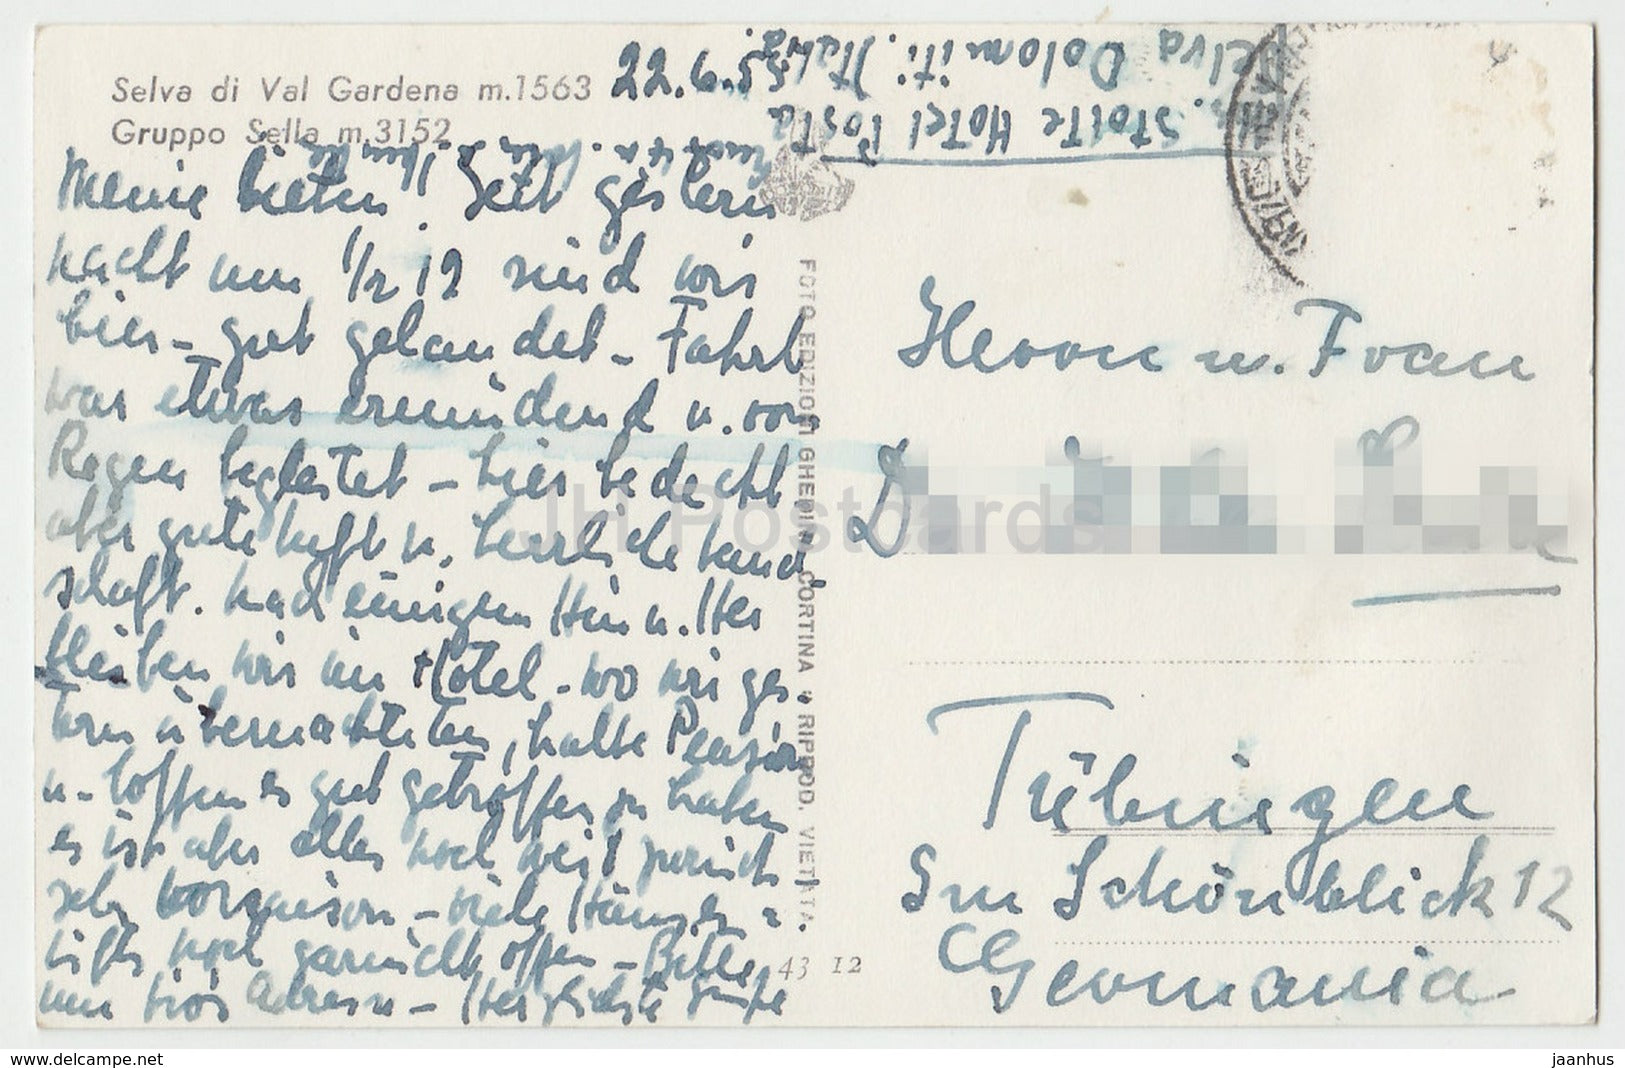 Selva di Val Gardena m.1563 22.6.55
Gruppo Sella m.3152
Stolte Hotel Posta
Selva Dolomiti. Italia.
Meine lieben! Seit gestern
nacht um 1/2 12 sind wir
hier - gut gelandet - Fahrt
war etwas ermüdend u. von
Regen begleitet - hier bedeckt
aber gute Luft u. herrliche Land-
schaft. Nach einigem Hin u. Her
bleiben wir im Hotel - wo wir ges-
tern übernachteten, halbe Pension
u. hoffen es gut getroffen zu haben
es ist aber alles noch weit zurück
sehr Vorsaison - viele Häuser u.
Lifts noch garnicht offen - Bitte
um Adressen - Herzlichste Grüße
FOTO EDIZIONI GHEDINA CORTINA RIPROD. VIETATA.
43 12
Herrn u. Frau
D
Tübingen
Im Schönblick 12
Germania
JH Postcards
delcampe.net
jaanhus